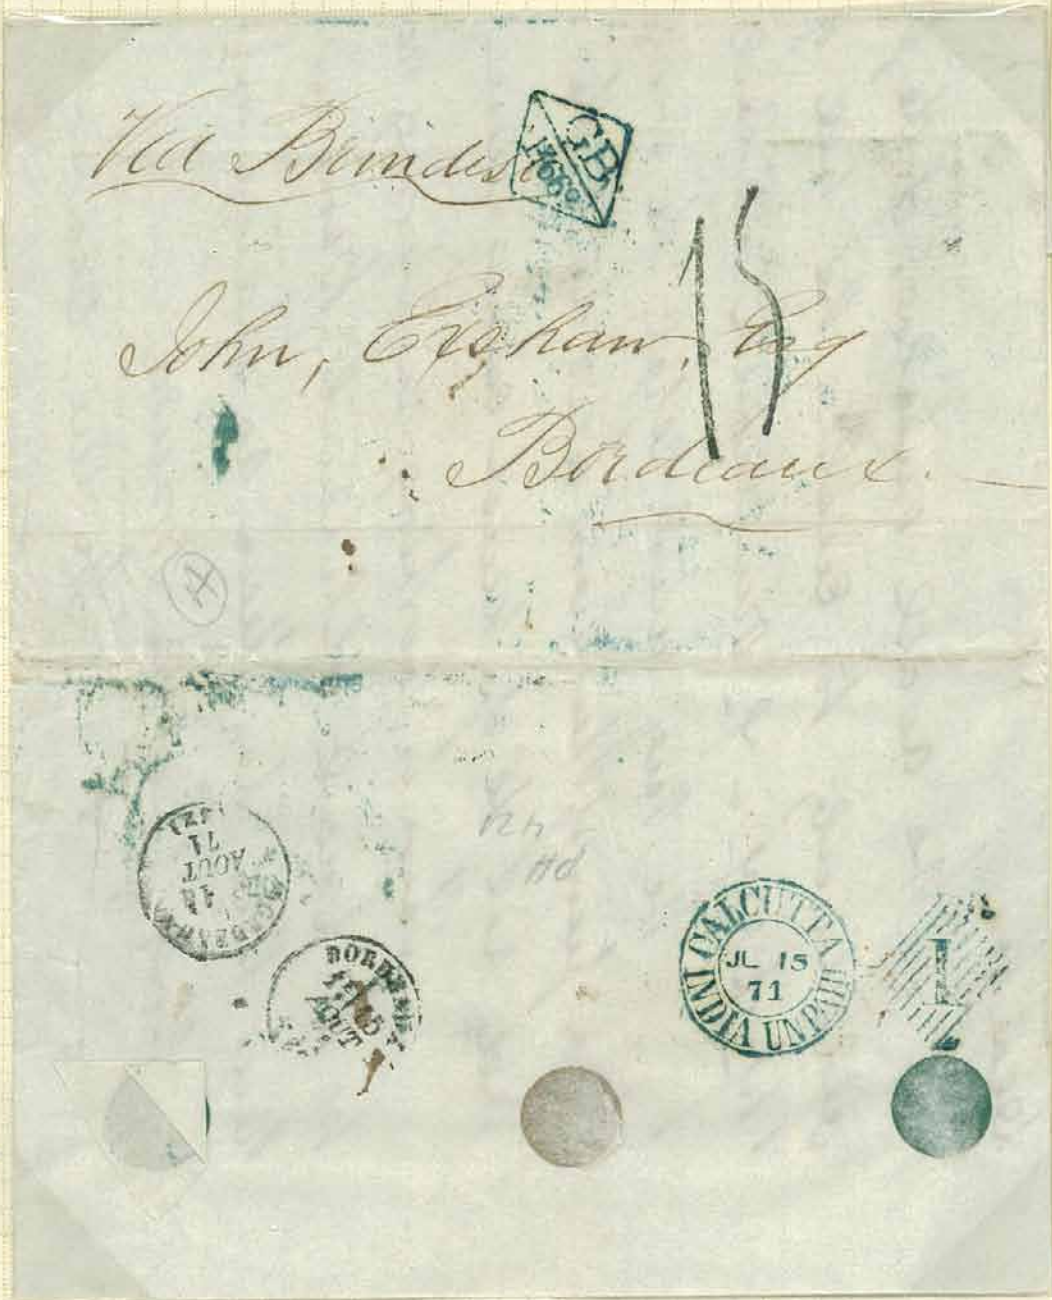 Via Brindisi
GB
1F 66c
15
John, Exshaw, Esq
Bordeaux.
H
71
AOUT
BORDEAUX
15
AOUT
CALCUTTA
JL 15
71
INDIA UNPAID
1